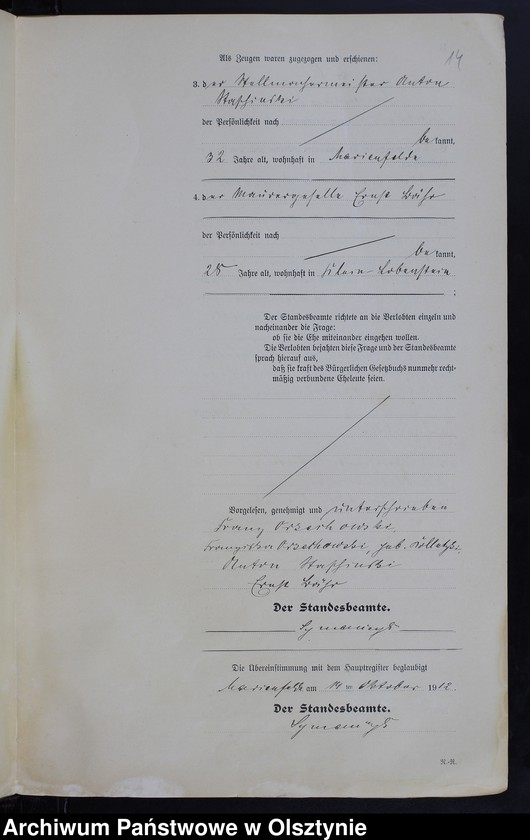 14
Als Zeugen waren zugezogen und erschienen:
3. der Stellmachermeister Anton
Staschinski
der Persönlichkeit nach
bekannt,
32 Jahre alt, wohnhaft in Marienfelde
4. der Maurergeselle Ernst Bähr
der Persönlichkeit nach
bekannt,
28 Jahre alt, wohnhaft in Klein-Lobenstein
;
Der Standesbeamte richtete an die Verlobten einzeln und
nacheinander die Frage:
ob sie die Ehe miteinander eingehen wollen.
Die Verlobten bejahten diese Frage und der Standesbeamte
sprach hierauf aus,
daß sie kraft des Bürgerlichen Gesetzbuchs nunmehr recht-
mäßig verbundene Eheleute seien.
Vorgelesen, genehmigt und unterschrieben
Franz Orzechowski,
Franziska Orzechowski, geb.
Anton Staschinski
Ernst Bähr
Der Standesbeamte.
Die Übereinstimmung mit dem Hauptregister beglaubigt
Marienfelde am 14 ten Oktober 1912.
Der Standesbeamte.
R.-R.
Archiwum Państwowe w Olsztynie